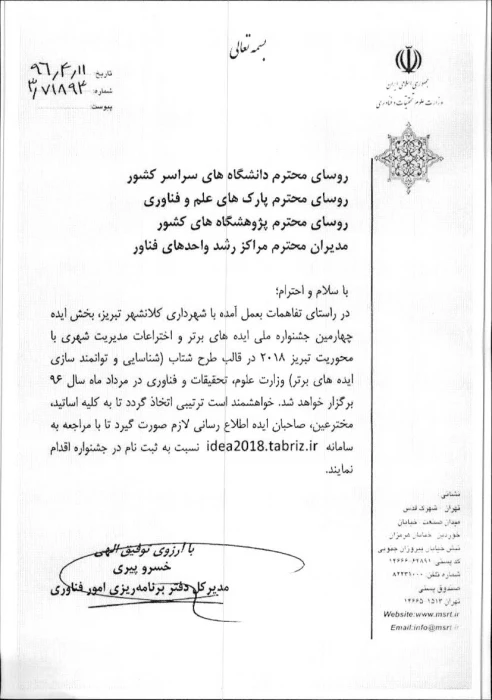 بسمه تعالی
جمهوری اسلامی ایران
وزارت علوم تحقیقات و فناوری
تاریخ: ۹۶٫۴٫۱۱
شماره: ۳٫۷۱۸۹۴
پیوست:
روسای محترم دانشگاه های سراسر کشور
روسای محترم پارک های علم و فناوری
روسای محترم پژوهشگاه های کشور
مدیران محترم مراکز رشد واحدهای فناور
با سلام و احترام؛
در راستای تفاهمات بعمل آمده با شهرداری کلانشهر تبریز، بخش ایده
چهارمین جشنواره ملی ایده های برتر و اختراعات مدیریت شهری با
محوریت تبریز ۲۰۱۸ در قالب طرح شتاب (شناسایی و توانمند سازی
ایده های برتر) وزارت علوم، تحقیقات و فناوری در مرداد ماه سال ۹۶
برگزار خواهد شد. خواهشمند است ترتیبی اتخاذ گردد تا به کلیه اساتید،
مخترعین، صاحبان ایده اطلاع رسانی لازم صورت گیرد تا با مراجعه به
سامانه idea2018.tabriz.ir نسبت به ثبت نام در جشنواره اقدام
نمایند.
با آرزوی توفیق الهی
خسرو پیری
مدیرکل دفتر برنامه‌ریزی امور فناوری
نشانی
تهران شهرک قدس
میدان صنعت خیابان
خوردین خیابان هرمزان
نبش خیابان پیروزان جنوبی
کد پستی ۱۴۶۶۶-۶۴۸۹۱
شماره تلفن ۸۲۲۳۱۰۰۰
صندوق پستی
تهران ۱۵۱۳-۱۴۶۶۵
Website:www.msrt.ir
Email:info@msrt.ir